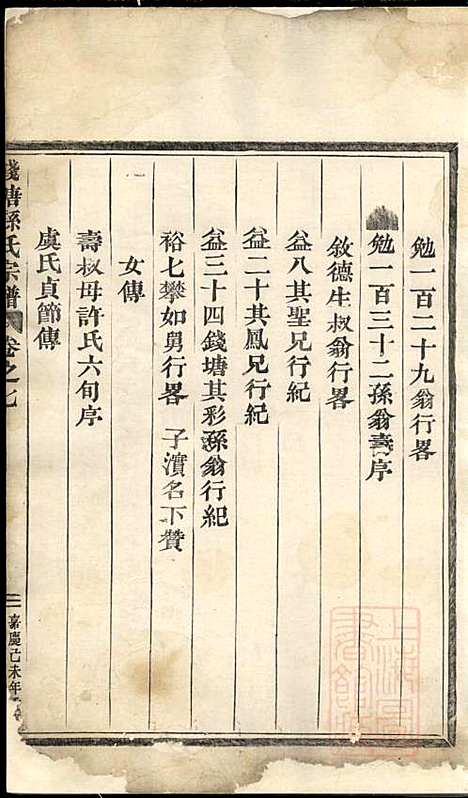 勉一百二十九翁行畧
勉一百三十二孫翁壽序
敘德生叔翁行畧
益八其聖兄行紀
益二十其鳳兄行紀
益三十四錢塘其彩孫翁行紀
裕七攀如舅行畧 子濱名下贊
女傳
壽叔母許氏六旬序
虞氏貞節傳
錢塘孫氏宗譜 卷之七
二 嘉慶己未年